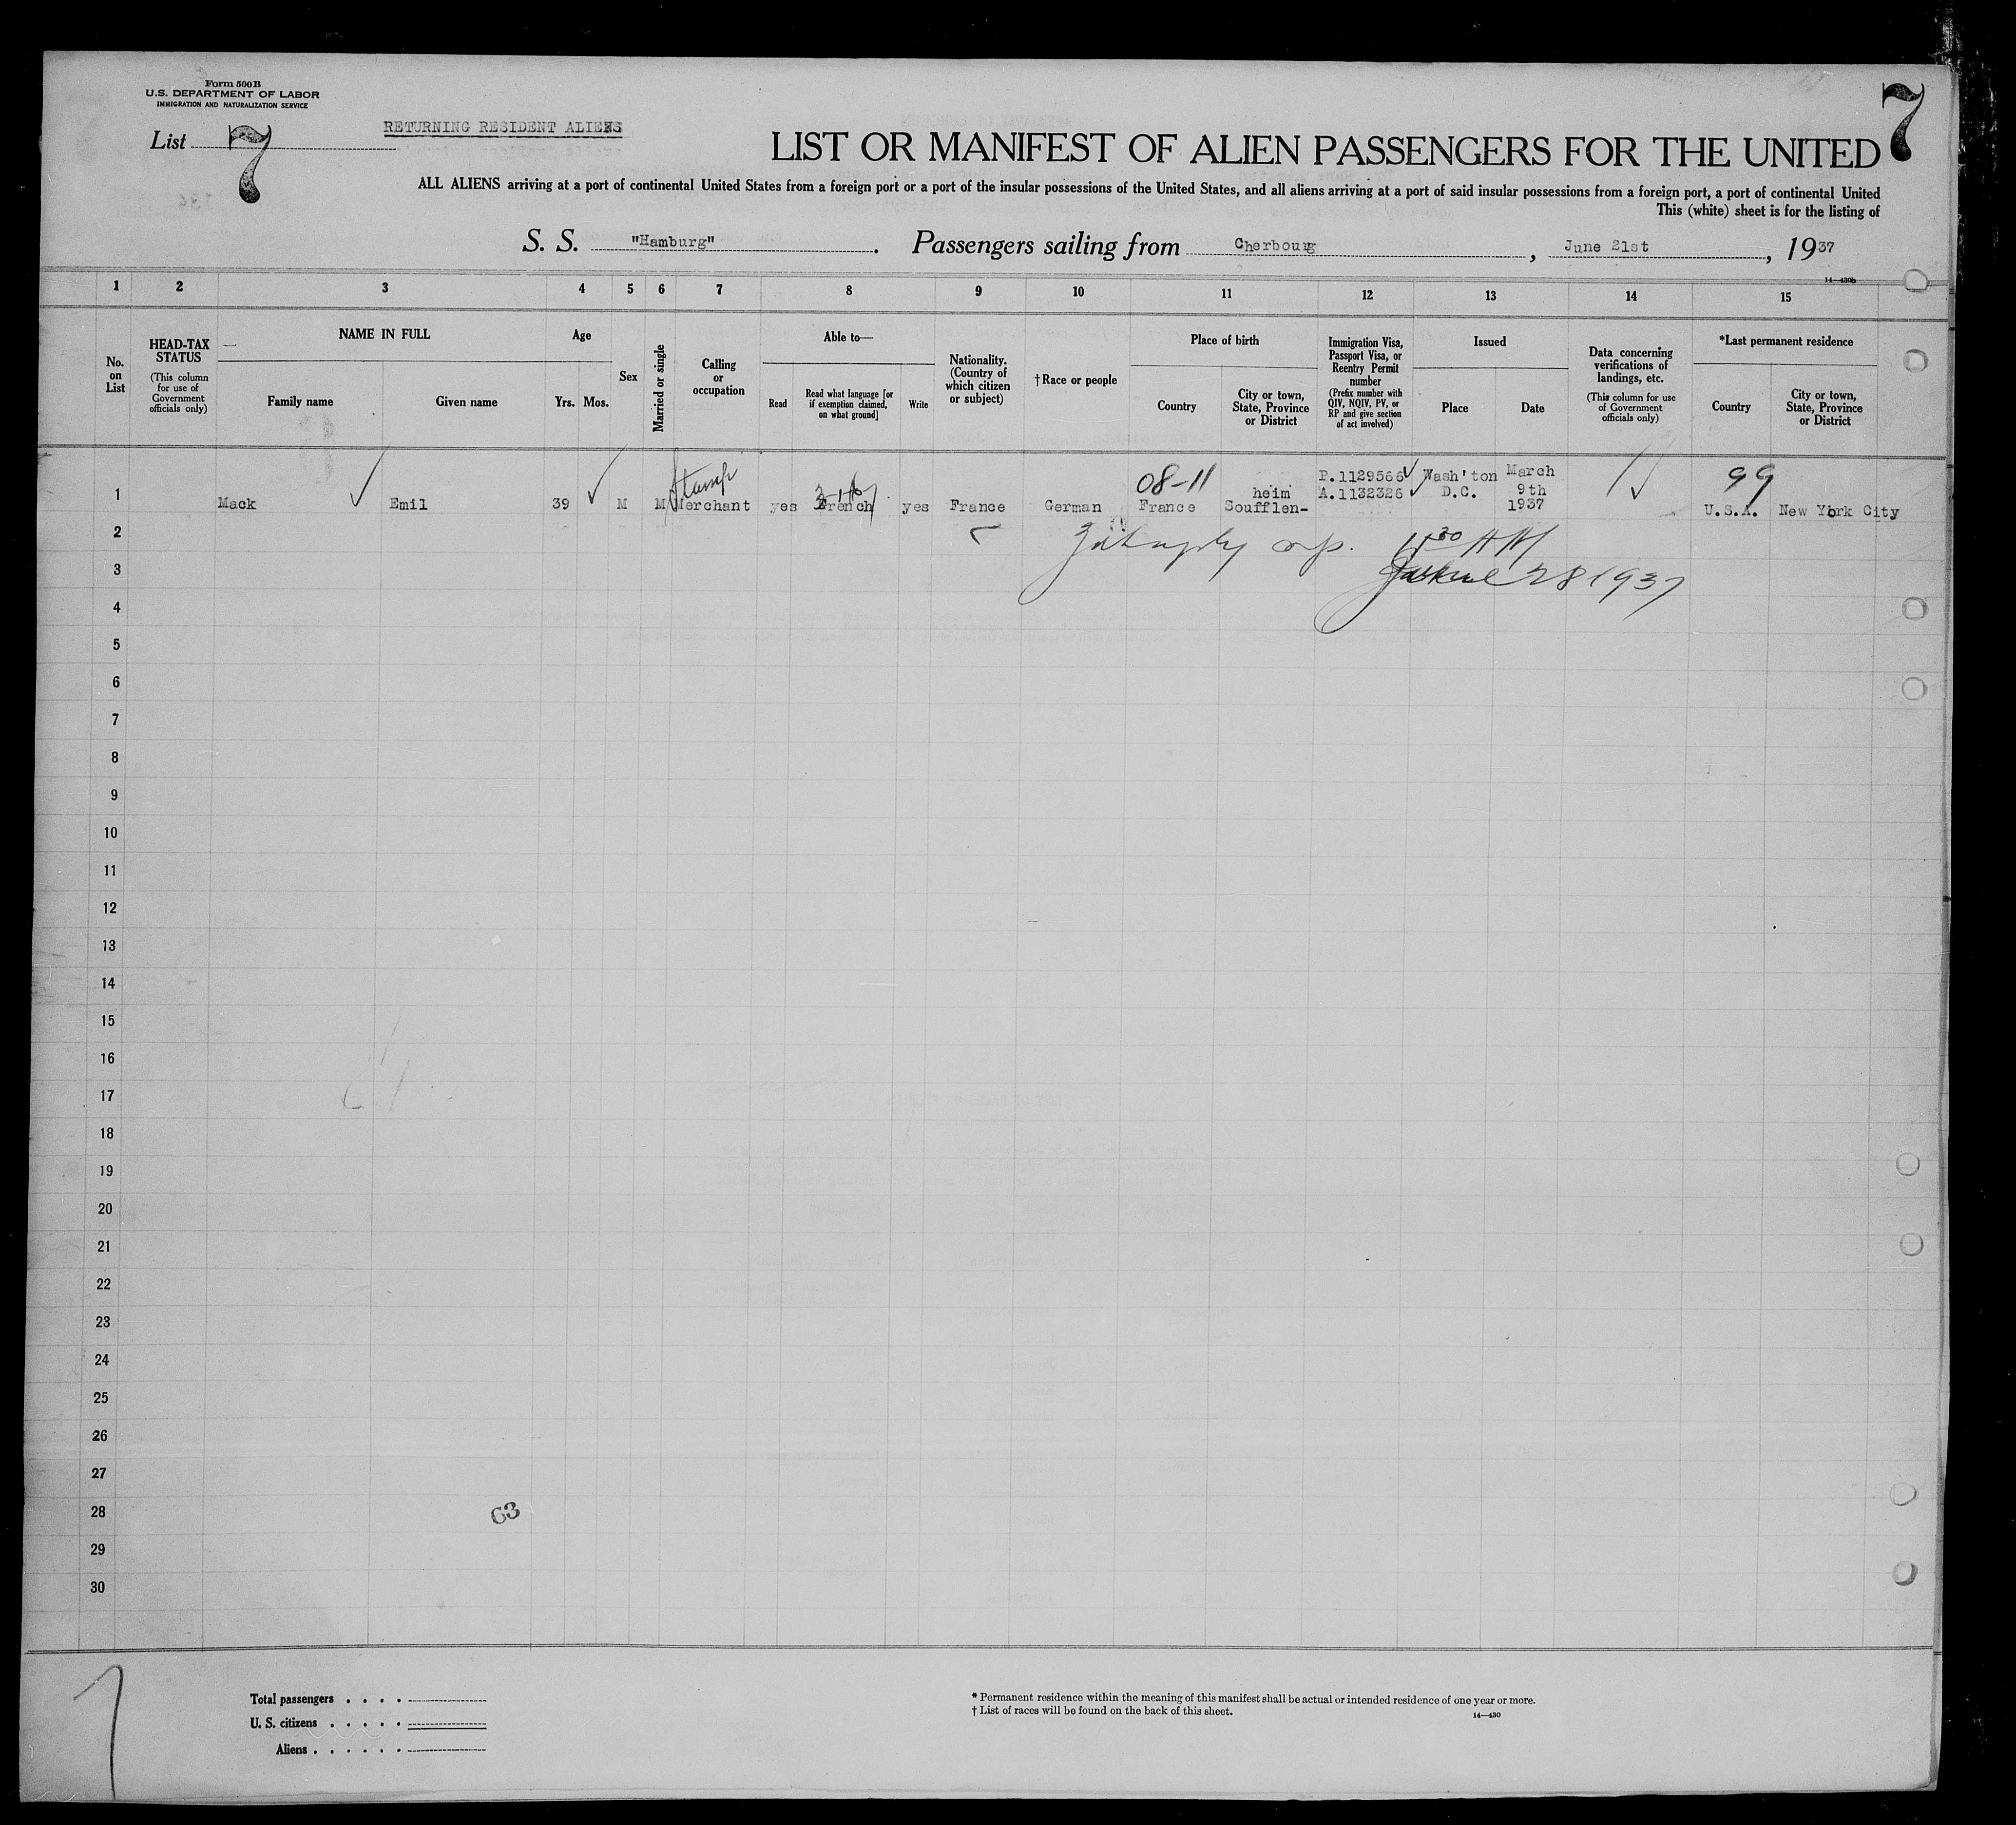 Form 500B
U.S. DEPARTMENT OF LABOR
IMMIGRATION AND NATURALIZATION SERVICE
List 7
RETURNING RESIDENT ALIENS
7
LIST OR MANIFEST OF ALIEN PASSENGERS FOR THE UNITED
ALL ALIENS arriving at a port of continental United States from a foreign port or a port of the insular possessions of the United States, and all aliens arriving at a port of said insular possessions from a foreign port, a port of continental United
This (white) sheet is for the listing of
S. S. "Hamburg". Passengers sailing from Cherbourg, June 21st, 1937
14—430b
1 2 3 4 5 6 7 8 9 10 11 12 13 14 15
No. on List
HEAD-TAX STATUS
(This column for use of Government officials only)
NAME IN FULL
Family name
Given name
Age
Yrs. Mos.
Sex
Married or single
Calling or occupation
Able to—
Read
Read what language [or if exemption claimed, on what ground]
Write
Nationality. (Country of which citizen or subject)
† Race or people
Place of birth
Country
City or town, State, Province or District
Immigration Visa, Passport Visa, or Reentry Permit number
(Prefix number with QIV, NQIV, PV, or RP and give section of act involved)
Issued
Place
Date
Data concerning verifications of landings, etc.
(This column for use of Government officials only)
*Last permanent residence
Country
City or town, State, Province or District
Stamp 08-11 P.1129566 Wash'ton March 99
heim A.1132326 D.C. 9th
1 Mack Emil 39 M M Merchant yes French yes France German France Soufflen- 1937 U.S.A. New York City
2 30 AM
3 28 1937
4
5
6
7
8
9
10
11
12
13
14
15
16
17
18
19
20
21
22
23
24
25
26
27
28 63
29
30
Total passengers . . . .
U. S. citizens . . . . .
Aliens . . . . . .
* Permanent residence within the meaning of this manifest shall be actual or intended residence of one year or more.
† List of races will be found on the back of this sheet.
14—430